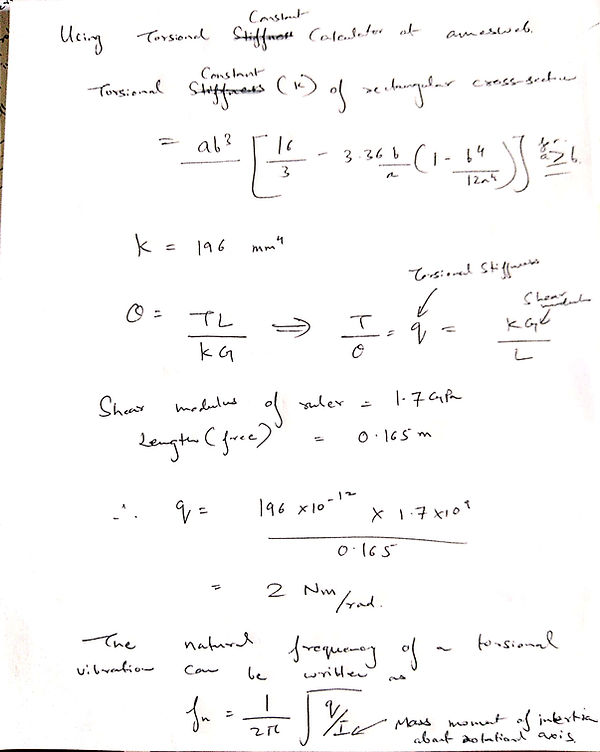 Constant
Using Torsional Stiffness Calculator at amesweb.
Constant
Torsional Stiffness (K) of rectangular cross-section
= ab³ [16/3 - 3.36 b/a (1 - b⁴/12a⁴)] for a ≥ b
K = 196 mm⁴
Torsional Stiffness
Shear modulus
θ = TL/KG ⟹ T/θ = q = KG/L
Shear modulus of ruler = 1.7 GPa
Length (free) = 0.165 m
∴ q = 196 × 10⁻¹² × 1.7 × 10⁹
0.165
= 2 Nm/rad.
The natural frequency of a torsional
vibration can be written as
fn = 1/2π √q/I ← Mass moment of intertia
about rotational axis